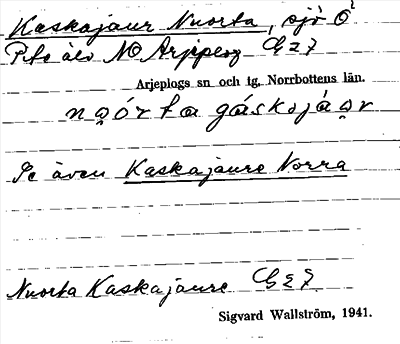 Kaskajaur Nuorta, sjö Ö
Pite älv NO Arjeplog G27
Arjeplogs sn och tg. Norrbottens län.
na̭órta gáskajáa̭r
Se även Kaskajaure Norra
Nuorta Kaskajaure G27.
Sigvard Wallström, 1941.